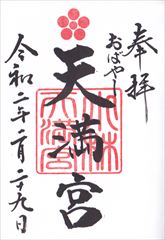 奉拝
おばやし
天満宮
令和二年二月二十九日